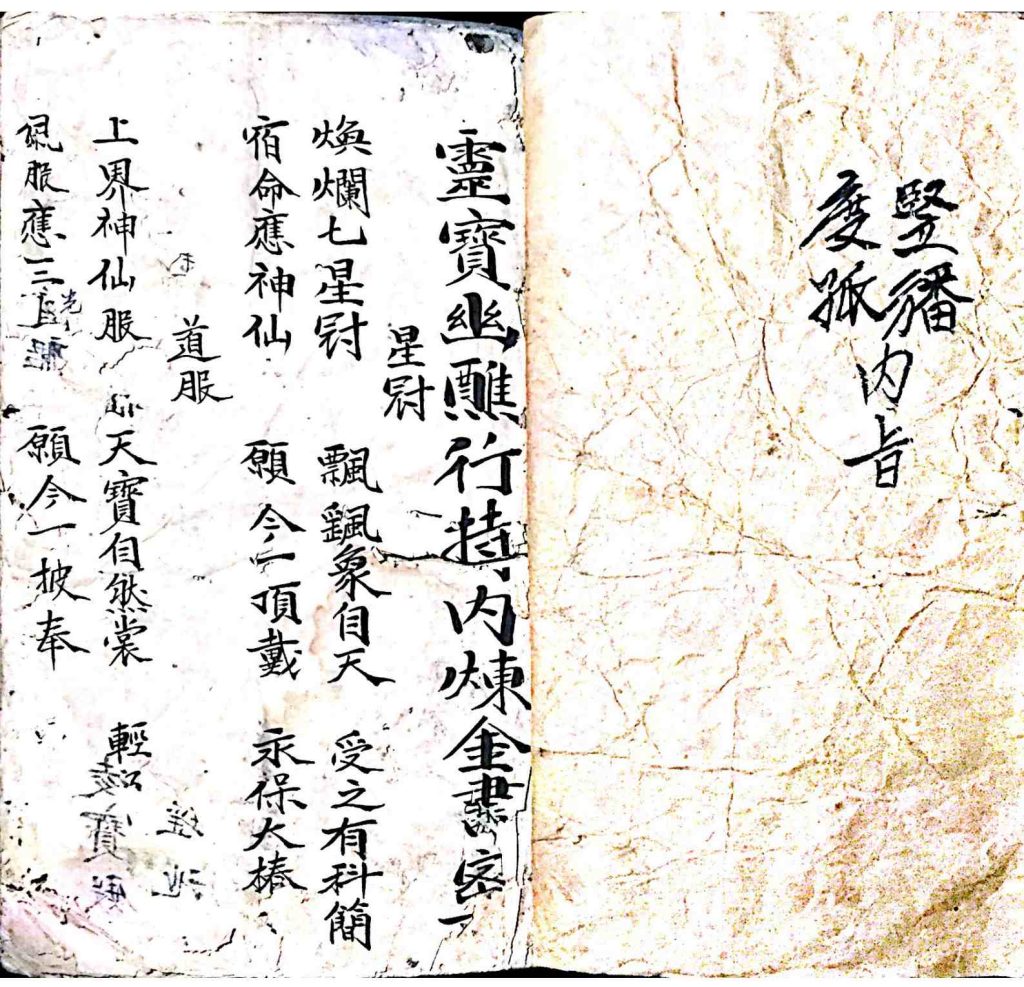 豎旛
度孤
内旨
靈寶幽醮行持内煉金書密
星冠
煥爛七星冠 飄飄象自天 受之有科簡
宿命應神仙 願今一頂戴 永保大椿
道服
上界神仙服 天寶自然裳 輕
服應三 願今一披奉